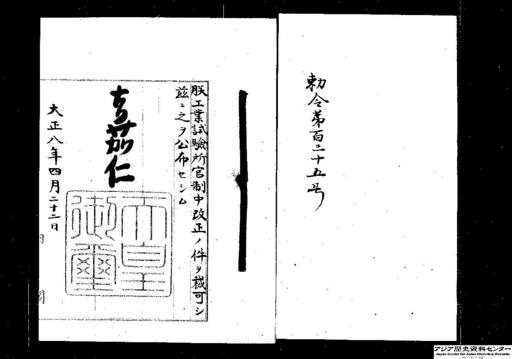 勅令第百二十五号
朕工業試験所官制中改正ノ件ヲ裁可シ
茲ニ之ヲ公布セシム
嘉仁
天皇
御璽
大正八年四月二十二日
内閣
アジア歴史資料センター
Japan Center for Asian Historical Records